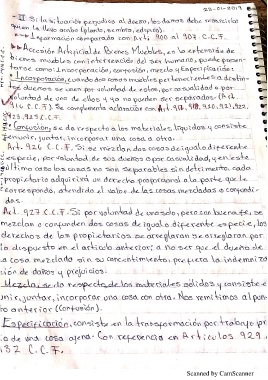 23-01-2019
II Si la situación perjudica al dueño, los daños debe resarcirlos
quien la llevo acabo (planto, sembro, edifico).
Información comparado con Art. 900 al 904 C.C.F.
Accesión Artificial de Bienes Muebles, es la extensión de
bienes muebles con intervención del ser humano, puede presen-
tarse como: Incorporación, confusión, mezcla y Especificación:
Incorporación, cuando dos cosas muebles pertenecientes a distin-
dueños se unen por voluntad de estos, por casualidad o por
voluntad de uno de ellos y ya no pueden ser separados. (Art.
916 C.C.F.). Se complementa aclaración con Art. 918, 919, 920, 921, 922,
923, 925 C.C.F.
Confusión: se da respecto a los materiales líquidos y consiste
en unir, juntar, incorporar una cosa a otra.
Art. 926 C.C.F. Si se mezclan dos cosas de igual o diferente
especie, por voluntad de sus dueños o por casualidad, y en este
último caso las cosas no son separables sin detrimento, cada
propietario adquirirá un derecho proporcional a la parte que le
corresponda, atendido el valor de las cosas mezcladas o confundi-
das.
Art. 927 C.C.F. Si por voluntad de uno solo, pero con buena fe, se
mezclan o confunden dos cosas de igual o diferente especie, los
derechos de los propietarios se arreglaran por
lo dispuesto en el artículo anterior; a no ser que el dueño de
la cosa mezclada sin su consentimiento, prefiera la indemniza-
ción de daños y perjuicios.
Mezcla: se da respecto de los materiales solidos y consiste en
unir, juntar, incorporar una cosa con otra. Nos remitimos al pun-
to anterior (Confusión).
Especificación, consiste en la transformación por trabajo pr
de una cosa ajena. Con referencia en Artículos 929
932 C.C.F.
Scanned by CamScanner